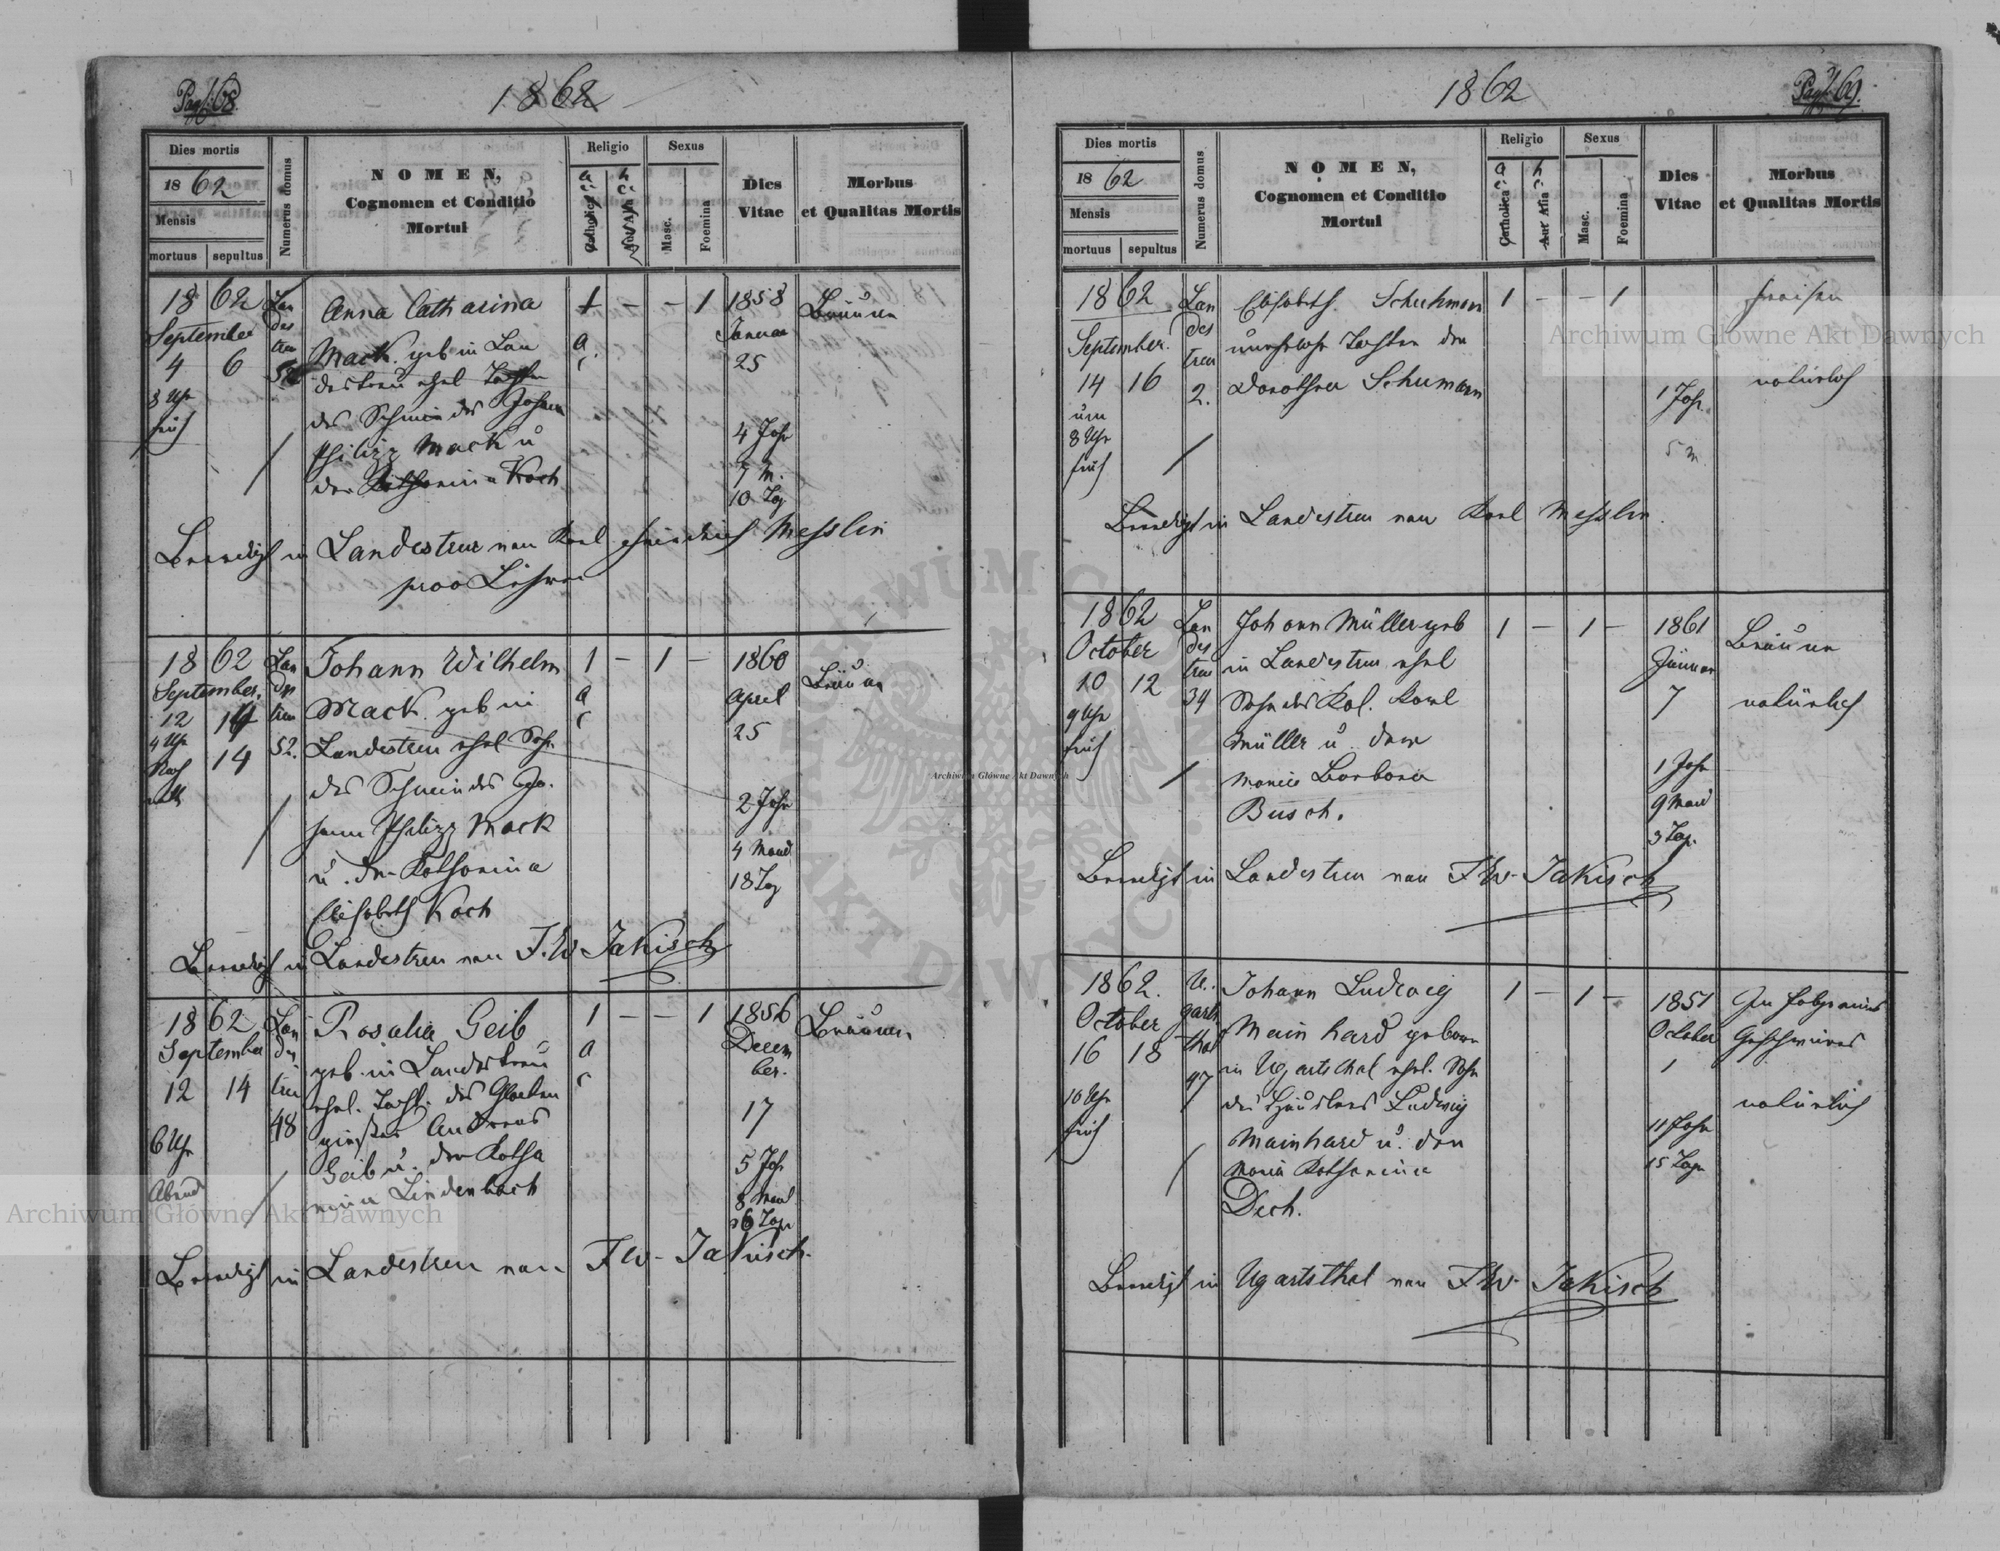 Pag. 68.
1862
Dies mortis
1862
Mensis
mortuus sepultus
Numerus domus
NOMEN,
Cognomen et Conditio
Mortui
Religio
Catholica
Sexus
Masc.
Foemina
Dies
Vitae
Morbus
et Qualitas Mortis
1862
September
4 6
8 Uhr
früh
Lan
des
treu
52
Anna Catharina
Mack geb in Lan
destreu ehel Tochter
des Schmiedes Johann
Philipp Mack u
der Katharina Koch
1 – – 1
a
c
1858
Januar
25
4 Jahr
7 M.
10 Tag
Bräune
Beerdigt in Landestreu von Karl Heinrich Messlin
prov Lehrer
1862
September.
12 14
4 Uhr
Nach
mitt
14
Lan
des
treu
52.
Johann Wilhelm
Mack geb in
Landestreu ehel Sohn
des Schmiedes Jo-
hann Philipp Mack
u. der Katharina
Elisabeth Koch
1 – 1 –
a
c
1860
April
25
2 Jahr
4 Monat
18 Tag
Bräune
Beerdigt in Landestreu von F.W. Jakisch
1862
September
12 14
6 Uhr
Abend
Lan
des
treu
48
Rosalia Geib
geb. in Landestreu
ehel. Tocht. des Glocken
giesser Andreas
Geib u. der Katha
rina Lindenbach
1 – – 1
a
c
1856
Decem
ber.
17
5 Jahr
8 Monat
26 Tage
Bräune
Beerdigt in Landestreu von F W. Jakisch.
1862
Pag. 69.
Dies mortis
1862
Mensis
mortuus sepultus
Numerus domus
NOMEN,
Cognomen et Conditio
Mortui
Religio
Catholica
Sexus
Masc.
Foemina
Dies
Vitae
Morbus
et Qualitas Mortis
1862
September.
14 16
um
8 Uhr
früh
Lan
des
treu
2.
Elisabeth Schuhmann
unehelche Tochter der
Dorothea Schumann
1 – – 1
1 Jahr
5 M.
Fraisen
natürlich
Beerdigt in Landestreu von Karl Messlin.
1862
October
10 12
9 Uhr
früh
Lan
des
treu
34
Johann Müller geb
in Landestreu ehel
Sohn des Kol. Karl
Müller u. der
Maria Barbara
Busch.
1 – 1 –
1861
Januar
7
1 Jahr
9 Monat
3 Tag.
Bräune
natürlich
Beerdigt in Landestreu von F W. Jakisch
1862.
October
16 18
10 Uhr
früh
U.
garts
thal
47
Johann Ludwig
Mainhard geboren
in Ugartsthal ehel. Sohn
des Häuslers Ludwig
Mainhard u. der
Maria Katharina
Dech.
1 – 1 –
1851
October
1
11 Jahr
15 Tage
In Folge eines
Geschwüres
natürlich
Beerdigt in Ugartsthal von F W. Jakisch
Archiwum Główne Akt Dawnych
Archiwum Główne Akt Dawnych
Archiwum Główne Akt Dawnych
ARCHIWUM GŁÓWNE AKT DAWNYCH